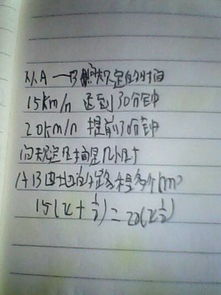 从A—B 规定的时间
15km/n 迟到30分钟
20km/n 提前30分钟
问规定时间是几小时
A B 两地的路程是多少km
15(x+½)=20(x½)